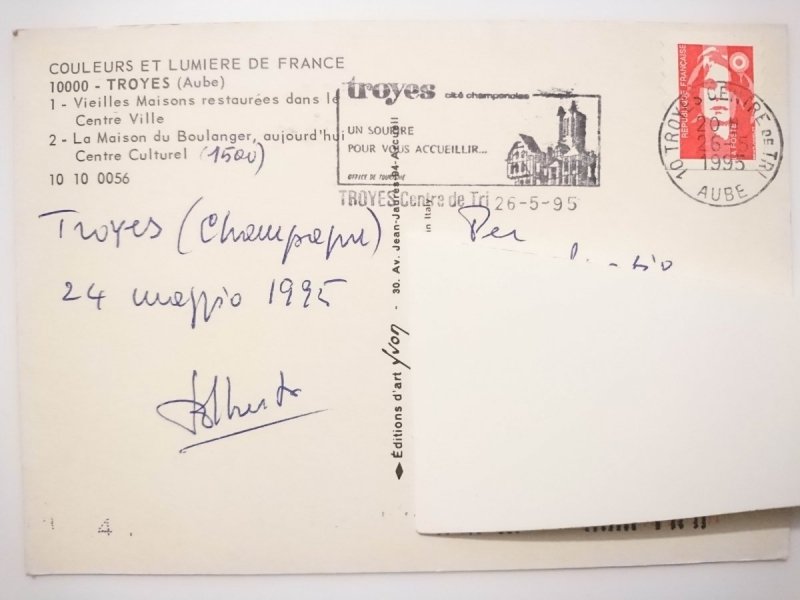 COULEURS ET LUMIERE DE FRANCE
10000 - TROYES (Aube)
1 - Vieilles Maisons restaurées dans le
Centre Ville
2 - La Maison du Boulanger, aujourd'hui
Centre Culturel (1500)
10 10 0056
troyes cité champenoise
UN SOURIRE
POUR VOUS ACCUEILLIR...
OFFICE DE TOURISME
TROYES Centre de Tri 26-5-95
REPUBLIQUE FRANÇAISE
LA POSTE
10 TROYES CENTRE DE TRI
26-5
1995
AUBE
Troyes (Champagne)
24 maggio 1995
Alberto
Per
Editions d'art yvon - 30. Av. Jean-Jaurès-94-Arcueil
in Italy
4.